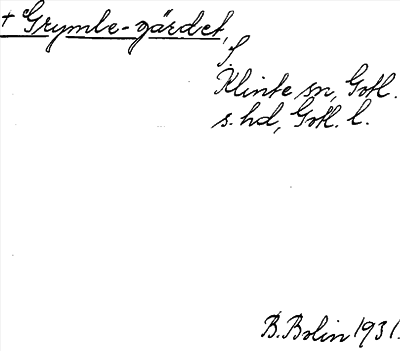 + Grymle-gärdet,
f.
Klinte sn, Gotl.
s. hd, Gotl. l.
B. Bolin 1931.